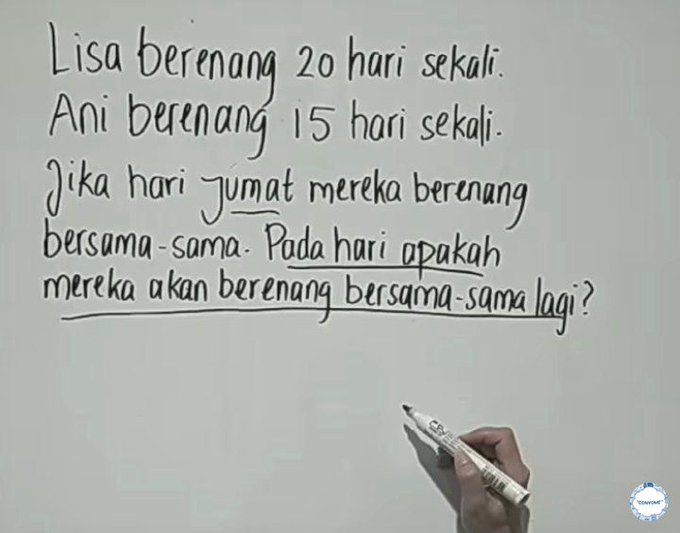 Lisa berenang 20 hari sekali.
Ani berenang 15 hari sekali.
Jika hari jumat mereka berenang
bersama-sama. Pada hari apakah
mereka akan berenang bersama-sama lagi?
"CONYOME"